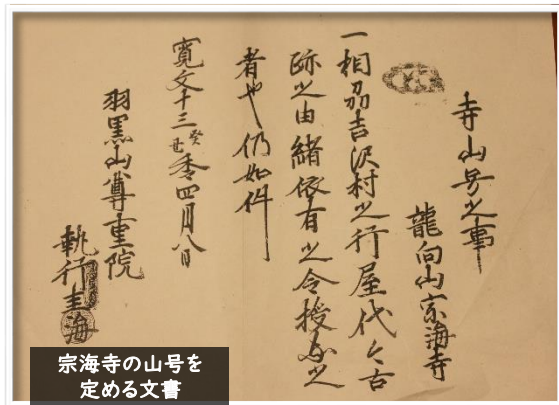 寺山号之事
龍向山宗海寺
一相州吉沢村之行屋代々古
跡之由緒依有之令授与之
者也仍如件
寛文十三癸丑年四月八日
羽黒山尊重院
執行圭海
宗海寺の山号を
定める文書